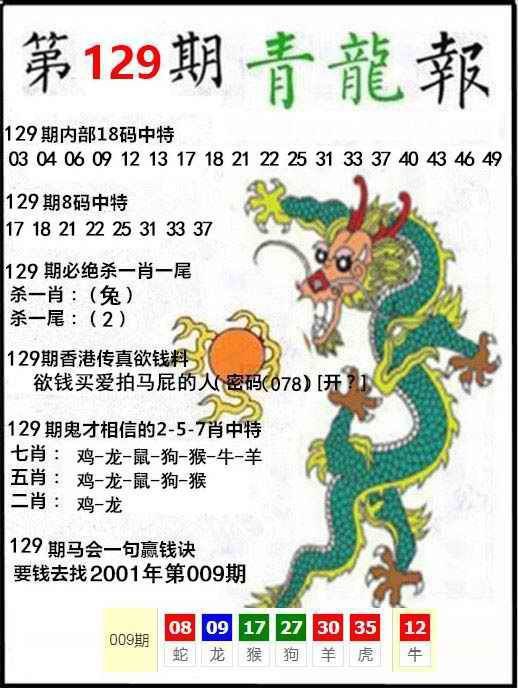 第129期青龍報
129期内部18码中特
03 04 06 09 12 13 17 18 21 22 25 31 33 37 40 43 46 49
129期8码中特
17 18 21 22 25 31 33 37
129 期必绝杀一肖一尾
杀一肖：（兔）
杀一尾：（2）
129期香港传真欲钱料
欲钱买爱拍马屁的人(密码(078) [开？]
129期鬼才相信的2-5-7肖中特
七肖： 鸡-龙-鼠-狗-猴-牛-羊
五肖： 鸡-龙-鼠-狗-猴
二肖： 鸡-龙
129期马会一句赢钱诀
要钱去找2001年第009期
009期 08 09 17 27 30 35 12
蛇 龙 猴 狗 羊 虎 牛